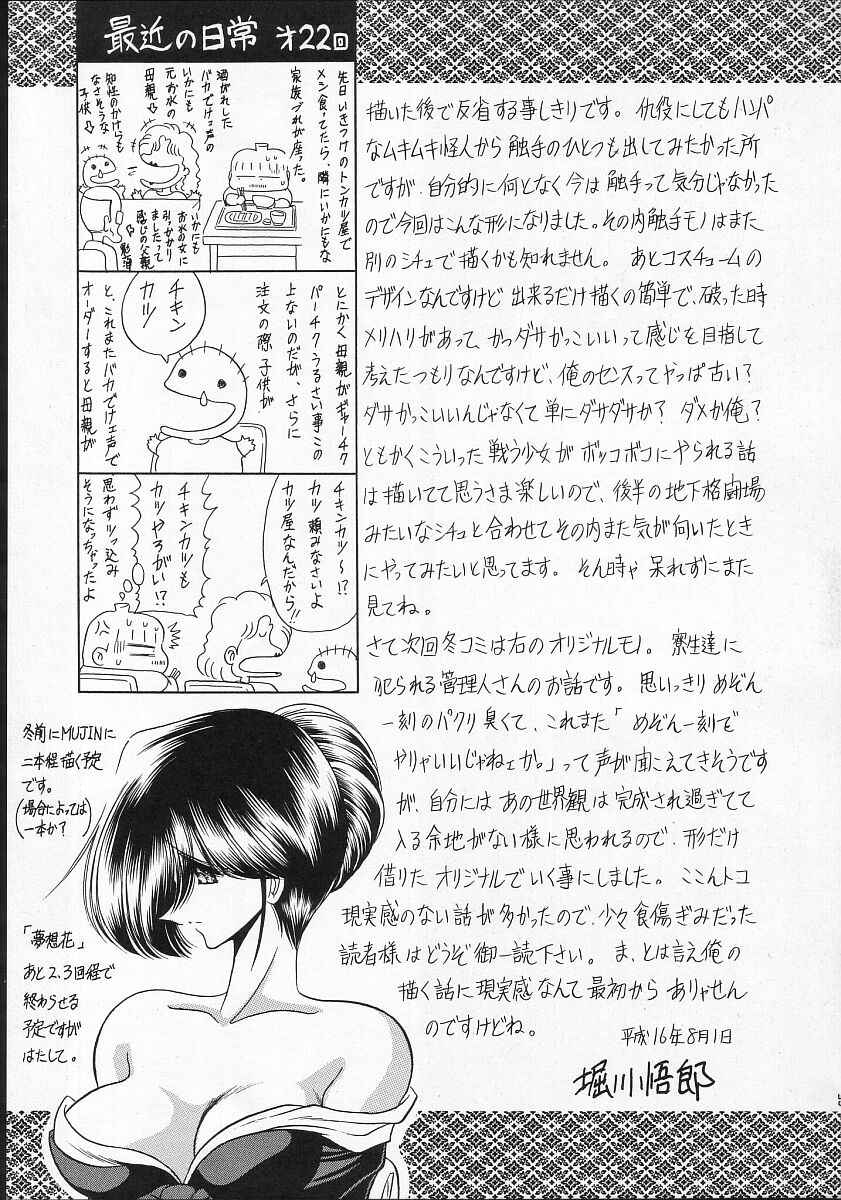 最近の日常 才22回
先日いきつけのトンカツ屋で
メシ食ってたら、隣にいかにもな
家族づれが座った。
酒がれした
バカでけェ声の
いかにも
元お水の
母親⇨
知性のかけらも
なさそうな
子供⇨
いかにも
お水の女に
引っかかり
ましたって
感じの父親
とにかく母親がギャーチク
パーチクうるさい事この
上ないのだが、さらに
注文の際、子供が
チキン
カツ
と、これまたバカでけェ声で
オーダーすると母親が
チキンカツ〜!?
カツ頼みなさいよ
カツ屋なんだから!!
チキンカツも
カツやろがい!?
思わずツッ込み
そうになっちゃったよ
描いた後で反省する事しきりです。仇役にしてもハンパ
なムキムキ怪人から触手のひとつも出してみたかった所
ですが、自分的に何となく今は触手って気分じゃなかった
ので今回はこんな形になりました。その内触手モノはまた
別のシチュで描くかも知れません。あとコスチュームの
デザインなんですけど出来るだけ描くの簡単で、破った時
メリハリがあって、かつダサかっこいいって感じを目指して
考えたつもりなんですけど、俺のセンスってやっぱ古い?
ダサかっこいいんじゃなくて単にダサダサか? ダメか俺?
ともかくこういった戦う少女がボッコボコにやられる話
は描いてて思うさま楽しいので、後半の地下格闘場
みたいなシチュと合わせてその内また気が向いたとき
にやってみたいと思ってます。そん時ゃ呆れずにまた
見てね。
さて次回冬コミは右のオリジナルモノ。寮生達に
犯られる管理人さんのお話です。思いっきりめぞん
一刻のパクリ臭くて、これまた「めぞん一刻で
やりゃいいじゃねェか。」って声が聞こえてきそうです
が、自分にはあの世界観は完成され過ぎてて
入る余地がない様に思われるので、形だけ
借りたオリジナルでいく事にしました。ここんトコ
現実感のない話が多かったので、少々食傷ぎみだった
読者様はどうぞ御一読下さい。ま、とは言え俺の
描く話に現実感なんて最初からありゃせん
のですけどね。
平成16年8月1日
堀川悟郎
冬前にMUJINに
二本程描く予定
です。
(場合によっては
一本か?)
「夢想花」
あと2、3回程で
終わらせる
予定ですが
はたして。